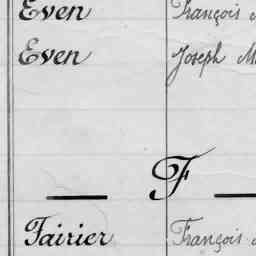 Even François
Even Joseph
F
Fairier François